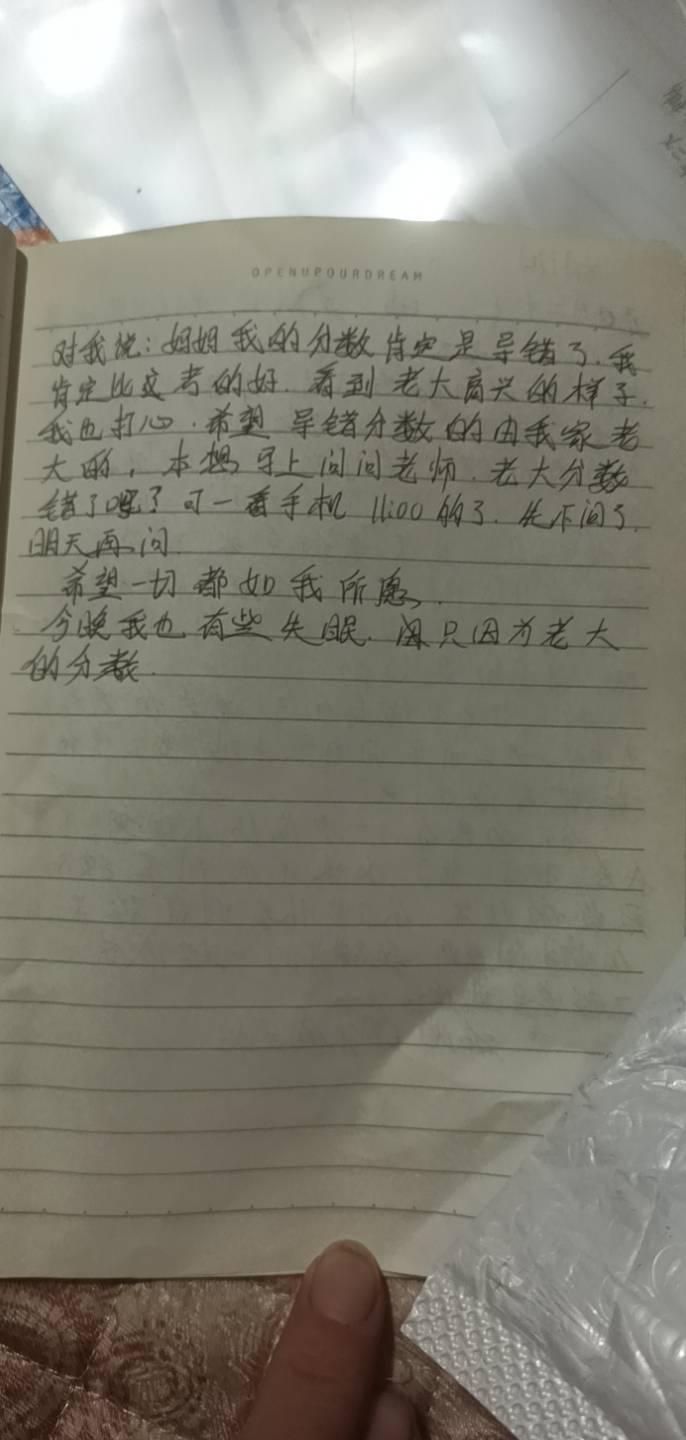 OPENUPOURDREAM
对我说：妈妈我的分数肯定是导错了.我
肯定比这考的好.看到老大高兴的样子.
我也打心.希望导错分数的由我家老
大的，本想马上问问老师.老大分数
错了嘿了可一看手机11:00的了.先不问了.
明天再问.
希望一切都如我所愿.
今晚我也有些失眠.只因为老大
的分数.